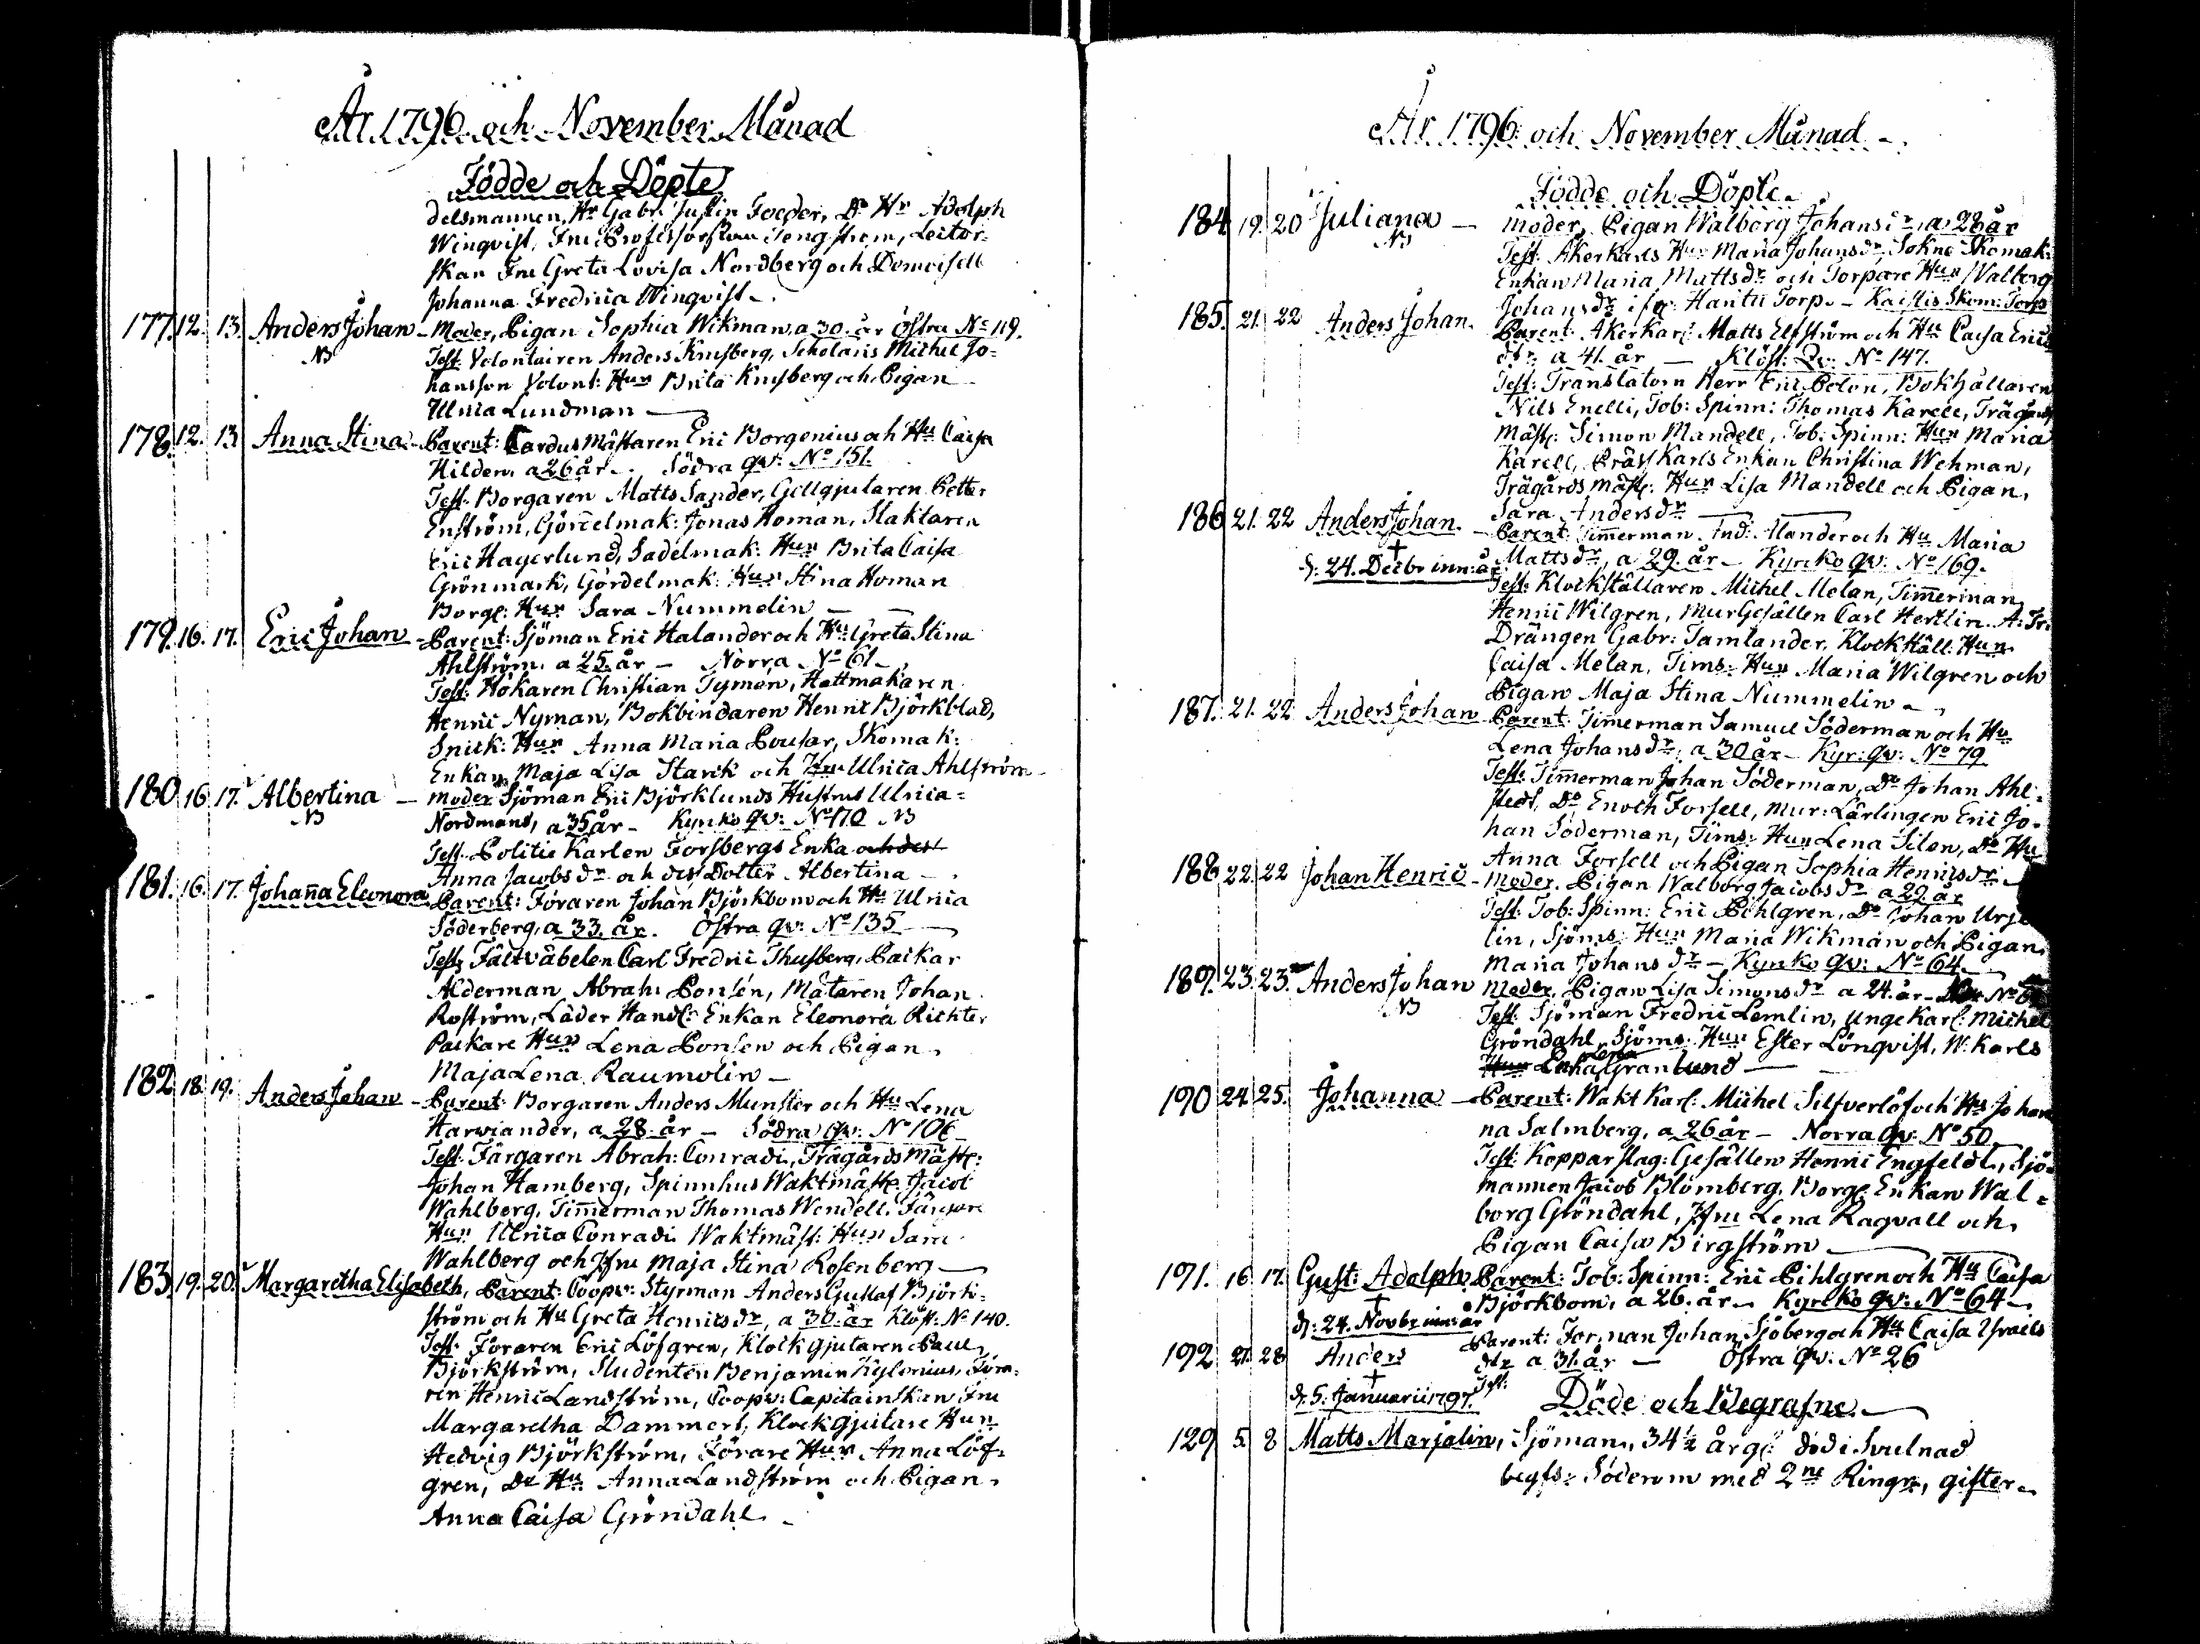 År 1796 och November Månad
Födde och Döpte
delsmannen, Hr Gabr. Justin Foeder, Do Hr Adolph
Winqvist, Fru Professorskan Tengström, Lector-
skan Fru Greta Lovisa Nordberg och Demoisell
Johanna Fredrica Winqvist.
177. 12. 13. Anders Johan - Moder, Pigan Sophia Wikman, a 30. år Östra No 119.
NB Test. Volontairen Anders Knisberg, Scholaris Michel Jo-
hansson Volont: Hun Brita Knisberg och Pigan
Ulrica Lundman
178. 12. 13. Anna Stina - Parent: Cardus Mästaren Eric Borgenius och Hu Caisa
Hilden, a 26 år. Södra qv: No 151.
Test. Borgaren Matts Sander, Gellgjutaren Petter
Enström, Görtelmak: Jonas Homan, Slaktaren
Eric Hagerlund, Sadelmak: Hun Brita Caisa
Grönmark, Gördelmak: Hun Stina Homan
Borg: Hun Sara Nummelin
179. 16. 17. Eric Johan - Parent: Sjöman Eric Halander och Hu Greta Stina
Ahlström, a 25. år - Norra No 61.
Test: Hökaren Christian Tymen, Hattmakaren
Henric Nyman, Bokbindaren Henric Björkblad,
Snick: Hun Anna Maria , Skomak:
Enkan Maja Lisa Starck och Jfru Ulrica Ahlström
180. 16. 17. Albertina - moder Sjöman Eric Björklunds Hustru Ulrica
NB Nordmans, a 35 år - Kyrko qv: No 170 NB
Test. Politie Karlen Forsbergs Enka och des
Anna Jacobs dr och des Dotter Albertina
181. 16. 17. Johanna Eleonora Parent: Föraren Johan Björkbom och Hu Ulrica
Söderberg, a 33. år. Östra qv: No 135
Test. Fältväbelen Carl Fredric Thusberg, Packar
Ålderman Abrah: Ponsén, Mätaren Johan
Roström, Läder Handl: Enkan Eleonora Richter
Packare Hun Lena Ponsen och Pigan
Maja Lena Raumolin
182. 18. 19. Anders Johan - Parent: Borgaren Anders Munster och Hu Lena
Harwiander, a 28. år - Södra qv: No 106
Test. Färgaren Abrah: Conradi, Trägårds Mäst:
Johan Hamberg, Spinnhus Waktmäst: Jacob
Wahlberg, Timmerman Thomas Wendell, Färgare
Hun Ulrica Conradi Waktmäst: Hun Sara
Wahlberg och Jfru Maja Stina Rosenberg
183. 19. 20. Margaretha Elisabeth, Parent: Coopv: Styrman Anders Gustaf Björk-
ström och Hu Greta Henrics dr, a 30. år Klöst: No 140.
Test: Föraren Eric Löfgren, Klockgjutaren Paul
Björkström, Studenten Benjamin Kylenius, Föra-
ren Henric Landström, Coopv: Capitainskan Fru
Margaretha Dammert, Klockgjutare Hun
Hedvig Björkström, Förare Hun Anna Löf-
gren, Do Hu Anna Landström och Pigan
Anna Caisa Gröndahl.
År 1796 och November Månad
Födde och Döpte
184 19. 20 Juliana - moder, Pigan Walborg Johans dr, a 28 år
NB Test. Åkerkarls Hun Maria Johansdr Sokne Skomak:
Enkan Maria Mattsdr och Torpare Hun Walborg
Johansdr ifr: Hantu Torp. - Kaistis Skom: Torp
185. 21. 22 Anders Johan. Parent. Åkerkarl Matts Elfström och Hu Caisa Erics
dtr a 41. år - Klöst: Qv: No 147.
Test: Translatorn Herr Eric Polon, Bokhållaren
Nils Enelli, Tob: Spinn: Thomas Karell, Trägårds
Mäst: Simon Mandell, Tob: Spinn: Hun Maria
Karell, Karls Enkan Christina Wehman,
Trägårds mäst: Hun Lisa Mandell och Pigan,
Sara Anders dr
186 21. 22 Anders Johan. - Parent. Timmerman And: Alander och Hu Maria
† Matts dr, a 29. år - Kyrcko qv: No 169.
d: 24. Decbr inn: år Test: Klockställaren Michel Melan, Timmerman
Henric Wilgren, Mur Gesällen Carl Hertlin
Drängen Gabr: Tamlander, Klockställ: Hun
Caisa Melan, Tims: Hun Maria Wilgren och
Pigan Maja Stina Nummelin
187. 21. 22 Anders Johan Parent. Timmerman Samuel Söderman och Hu
Lena Johans dr, a 30 år - Kyr: qv: No 79
Test: Timmerman Johan Söderman, Do Johan Ahl-
stedt, Do Enoch Forsell, Mur: Lärlingen Eric Jo-
han Söderman, Tims: Hun Lena Silen, Do Hu
Anna Forsell och Pigan Sophia Henrics dr
188 22. 22 Johan Henric - Moder. Pigan Walborg Jacobs dr a 29. år
Test. Tob: Spinn: Eric Pihlgren, Do Johan
lin, Sjöms: Hun Maria Wikman och Pigan
Maria Johans dr - Kyrko qv: No 64
189. 23. 23. Anders Johan Moder. Pigan Lisa Simons dr a 24. år - No
NB Test: Sjöman Fredric Lemlin, Unge Karl: Michel
Gröndahl, Sjöms: Hun Ester Lönqvist, W: Karls
Hun Lena Granlund
190 24 25. Johanna - Parent: Wakt Karl: Michel Silfverlöf och Hu Johan
na Salmberg, a 26 år - Norra qv: No 50
Test. Kopparslag: Gesällen Henric Engfeldt, Sjö-
mannen Jacob Blomberg, Borg: Enkan Wal-
borg Gröndahl, Jfru Lena Ragvall och
Pigan Caisa Bergström
191. 16 17. Gust: Adolph Parent: Tob: Spinn: Eric Pihlgren och Hu Caisa
† Björkbom, a 26. år - Kyrcko qv: No 64
d: 24. Novbr inn: år
192 27. 28. Anders Parent: Forman Johan Sjöberg och Hu Caisa Israels
† dtr a 31. år - Östra qv: No 26
d: 5. Januarii 1797. Test:
Döde och Begrafne
129 5. 8 Matts Marjalin, Sjöman, 34 1/2 årg: död i Svulnad
begfs: Söderom med 2ne Ringn:, gifter